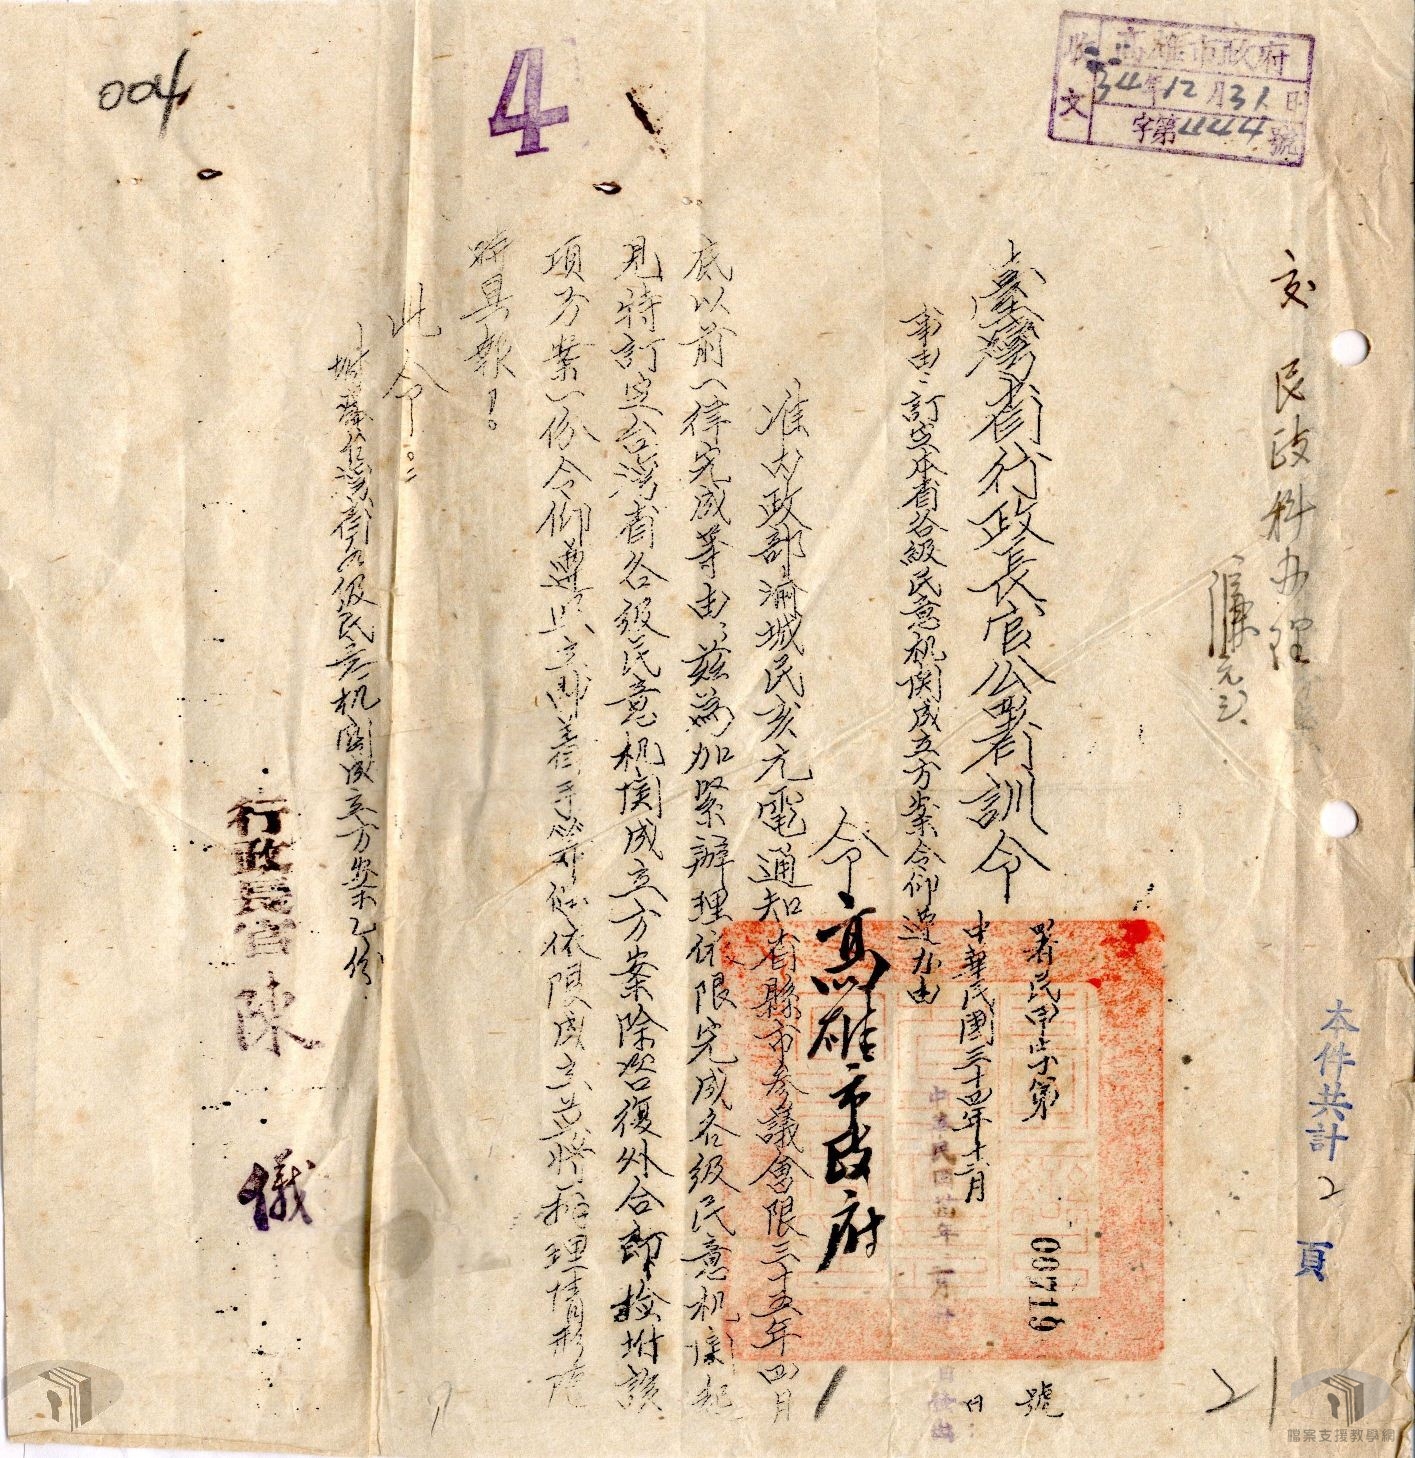 高雄市政府
收文
34年12月31日
字第444號
交 民政科办理
本件共計2頁
臺灣省行政長官公署訓令
署民甲字第00719號
中華民國三十四年十二月 日
事由：訂定本省各級民意机関成立方案令仰遵办由
令高雄市政府
准内政部渝城民亥元電通知省縣市参議會限三十五年四月
底以前一律完成等由，茲為加緊辦理依限完成各級民意机関起
見特訂定台湾省各級民意机関成立方案除咨復外合即检坿該
項方案一份令仰遵照立即着手筹俻依限成立並将辦理情形随
時具報！。
此令。
坿發台湾省各級民意机関成立方案乙份
行政長官 陳 儀
4
004
1
21
檔案支援教學網